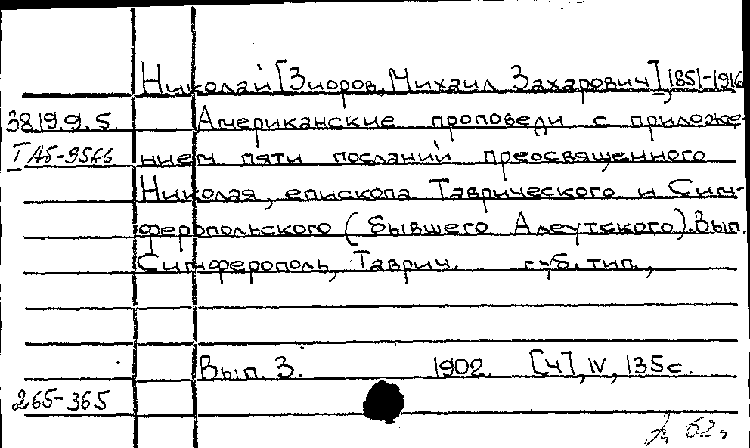 Николай [Зиоров, Михаил Захарович], 1851-1916
38.19.9.5 Американские проповеди с приложе-
I Аб-9566 нием пяти посланий преосвященного
Николая, епископа Таврического и Сим-
феропольского (бывшего Алеутского). Вып.
Симферополь, Таврич. губ. тип.,
Вып. 3. 1902. [4], IV, 135 с.
265-365
62